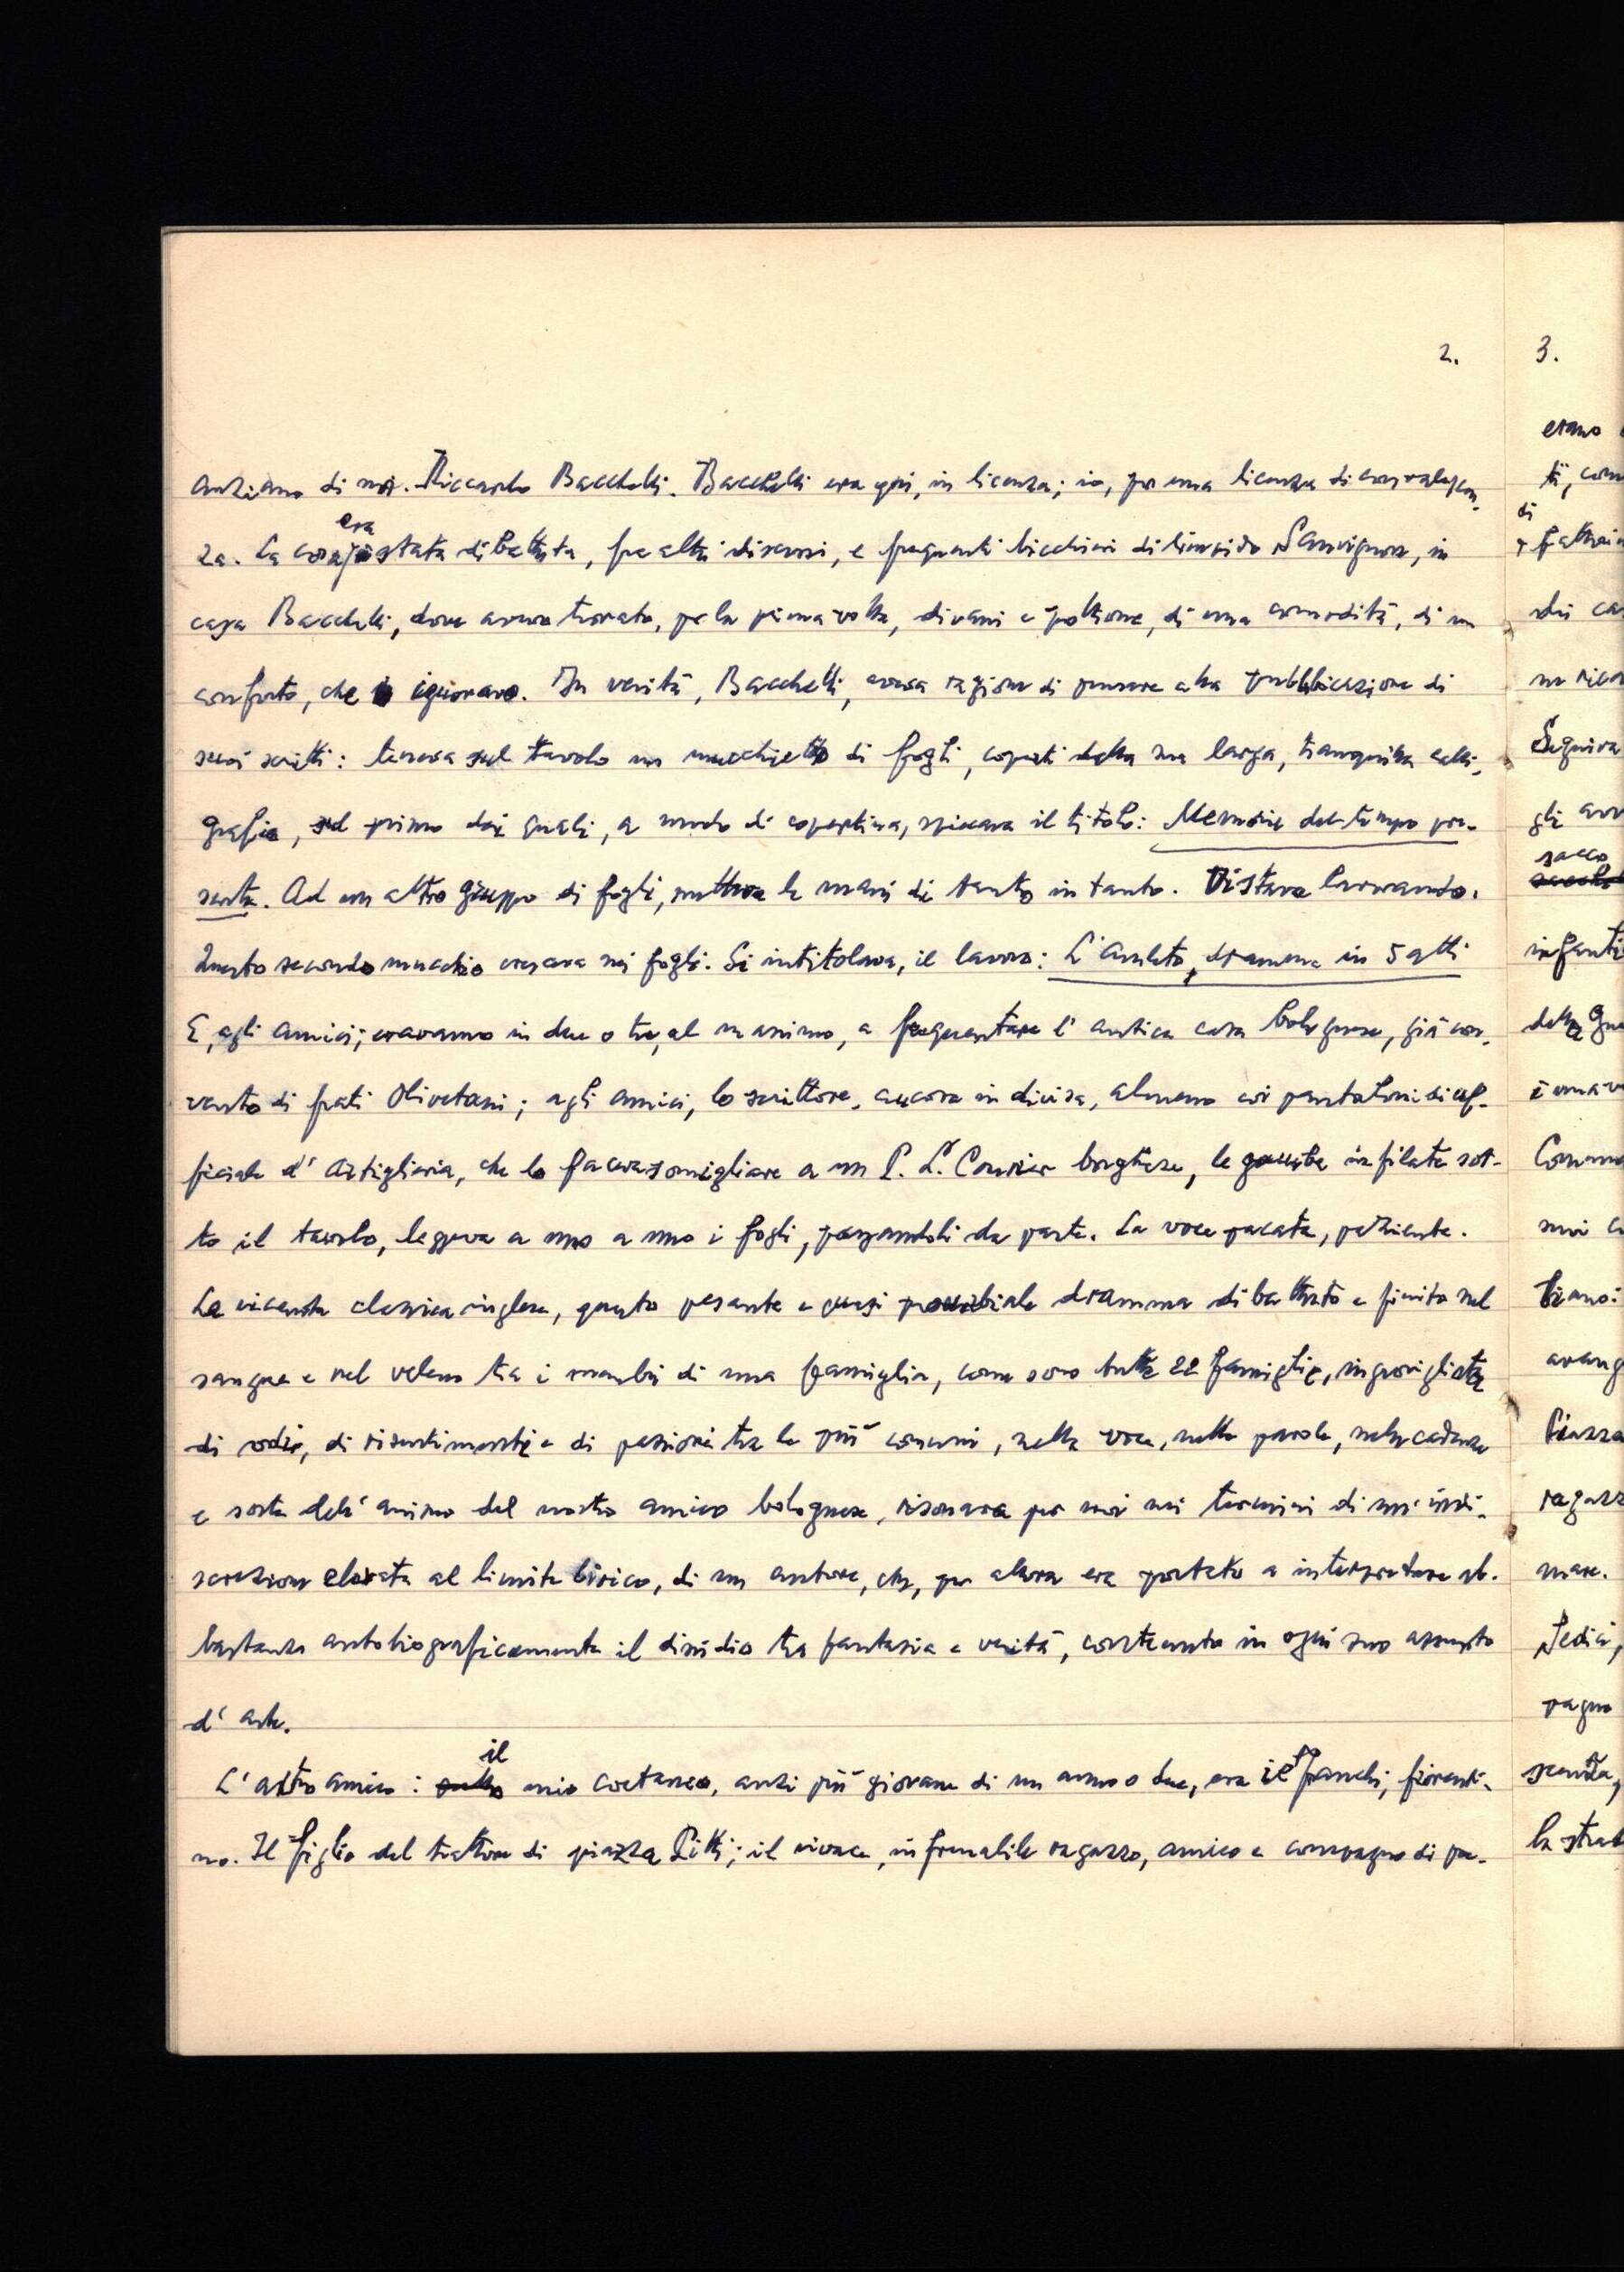 2.
anziano di noi. Riccardo Bacchelli. Bacchelli era qui, in licenza; io, per una licenza di convalescen-
za. La cosa era stata dibattuta, fra altri discorsi, e frequenti bicchieri di limpido Sauvignon, in
casa Bacchelli, dove avevo trovato, per la prima volta, divani e poltrone, di una comodità, di un
conforto, che ignoravo. In verità, Bacchelli, aveva ragione di pensare alla pubblicazione di
suoi scritti: teneva sul tavolo un mucchietto di fogli, coperti della sua larga, tranquilla calli-
grafia, sul primo dei quali, a modo di copertina, spiccava il titolo: Memorie del tempo pre-
sente. Ad un altro gruppo di fogli, metteva le mani di tanto in tanto. Vi stava lavorando.
Questo secondo mucchio cresceva nei fogli. Si intitolava, il lavoro: L'Amleto, dramma in 5 atti
E, agli amici; eravamo in due o tre, al massimo, a frequentare l'antica casa bolognese, già con-
vento di frati Olivetani; agli amici, lo scrittore, ancora in divisa, almeno coi pantaloni di uf-
ficiale d'Artiglieria, che lo faceva somigliare a un P. L. Courier borghese, le gambe infilate sot-
to il tavolo, leggeva a uno a uno i fogli, passandoli da parte. La voce pacata, paziente.
La vicenda classica inglese, questo pesante e quasi proverbiale dramma dibattuto e finito nel
sangue e nel veleno tra i membri di una famiglia, come sono tutte le famiglie, ingrovigliate
di odii, di risentimenti e di passioni tra le più comuni, nella voce, nelle parole, nelle cadenze
e soste dell'animo del nostro amico bolognese, risonava per noi nei termini di un'indi-
screzione elevata al limite lirico, di un autore, che, per allora era portato a interpretare ab-
bastanza autobiograficamente il dissidio tra fantasia e verità, contenuto in ogni suo assunto
d'arte.
L'altro amico: il mio coetaneo, anzi più giovane di un anno o due, era il Franchi, fiorenti-
no. Il figlio del trattore di piazza Pitti; il vivace, infrenabile ragazzo, amico e compagno di pa-
3.
erano
tà, com
di
dei ca
un ricor
Seguiva
gli avv
sacco
infanti
della gue
è una v
Comm
miei c
Piazza
ragazz
mare.
Sedici,
pagno